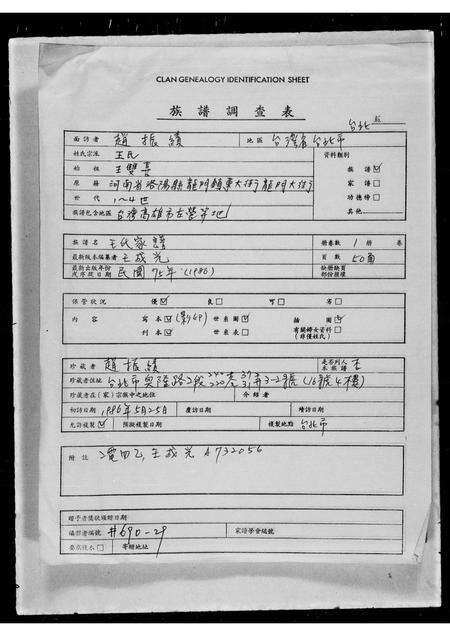 CLAN GENEALOGY IDENTIFICATION SHEET
族譜調查表
台北
面訪者 趙振績 地區 台灣省台北市
姓氏宗派 王氏 資料類別
始祖 王雙喜 族譜☑
原籍 河南省洛陽縣龍門鎮東大街龍門大街 家譜☐
世代 1~4世 功德榜☐
族譜包含地區 台灣高雄市左營等地 其他
族譜名 王氏家譜 冊卷數 1 冊 卷
最新版本編纂者 王成光 頁數 50面
最新出版年份或序跋日期 民國75年(1986) 缺冊缺頁部份損壞
保管狀況 優☑ 良☐ 可☐ 劣☐
內容 寫本☑(影印) 世系圖☑ 插圖☑
刊本☐ 世系表☐ 有關婦女資料☐(非僅姓氏)
珍藏者 趙振績 是否列入本族譜 否
珍藏者住址 台北市興隆路2段220巷37弄3-2號(16號4樓)
珍藏者在(家)宗族中之地位 介紹者
初訪日期 1986年5月25日 覆訪日期 續訪日期
允許複製☑ 預擬複製日期 複製地點 台北市
附註 王成光 4732056
贈予者獎狀頒贈日期
編纂者編號 #690-29 家譜學會編號
要求技本☐ 寄贈地址